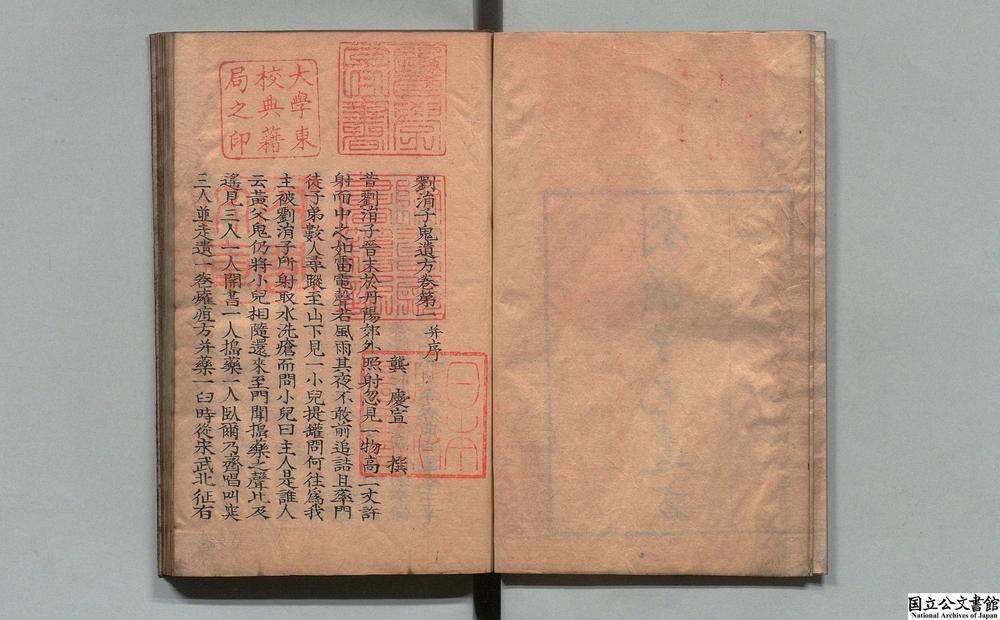 劉涓子鬼遺方卷第一 并序
龔慶宣 撰
昔劉涓子晉末於丹陽郊外照射忽見一物高二丈許
射而中之如雷電聲若風雨其夜不敢前追詰旦率門
徒子弟數人尋蹤至山下見一小兒提罐問何往爲我
主被劉涓子所射取水洗瘡而問小兒曰主人是誰人
云黃父鬼仍將小兒相隨還來至門聞搗藥之聲比及
遙見三人一人開書一人搗藥一人臥爾乃齊唱叫突
三人並走遺一卷癰疽方并藥一臼時從宋武北征有
大學東
校典藉
局之印
醫學
圖書
日本
国立公文書館
National Archives of Japan